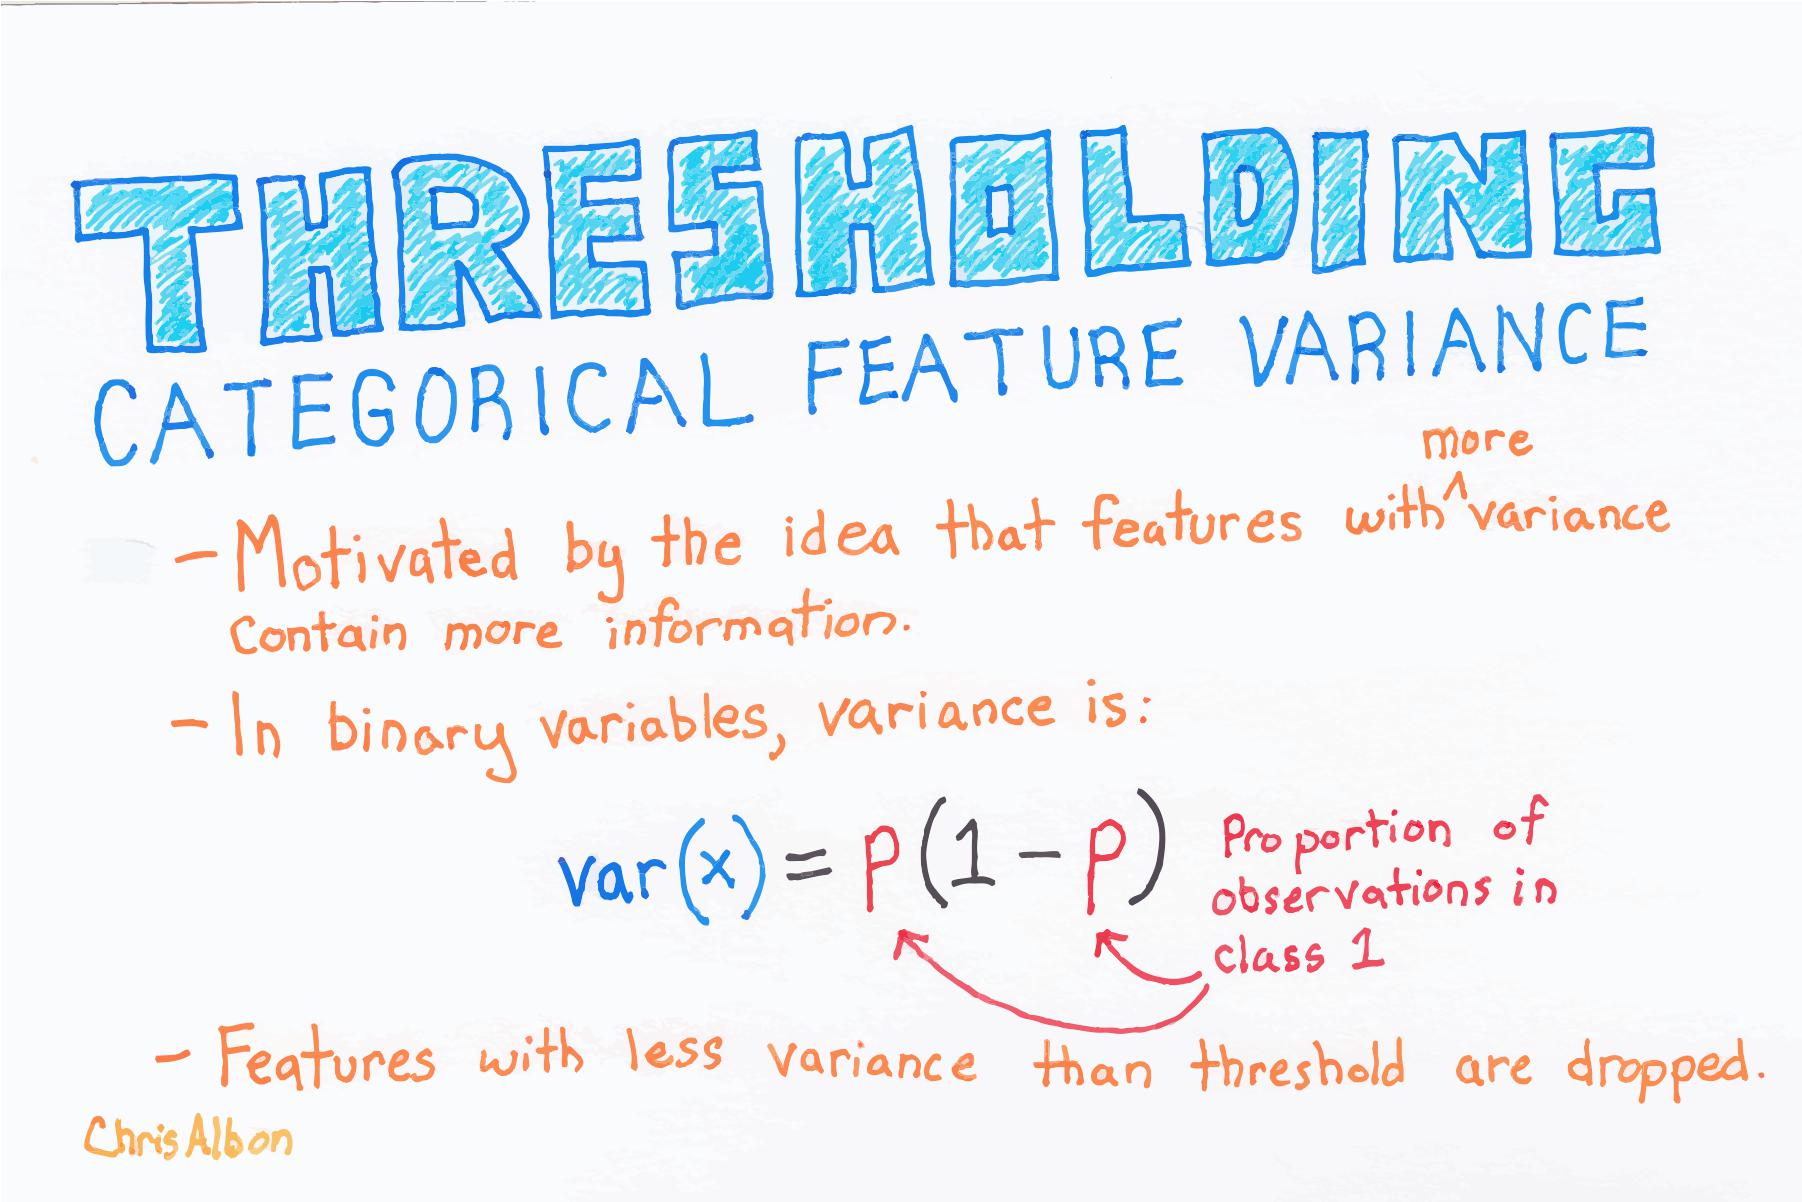 THRESHOLDING
CATEGORICAL FEATURE VARIANCE
more
- Motivated by the idea that features with ^ variance
Contain more information.
- In binary variables, variance is:
var(x) = p(1 - p)
Proportion of
observations in
class 1
- Features with less variance than threshold are dropped.
Chris Albon